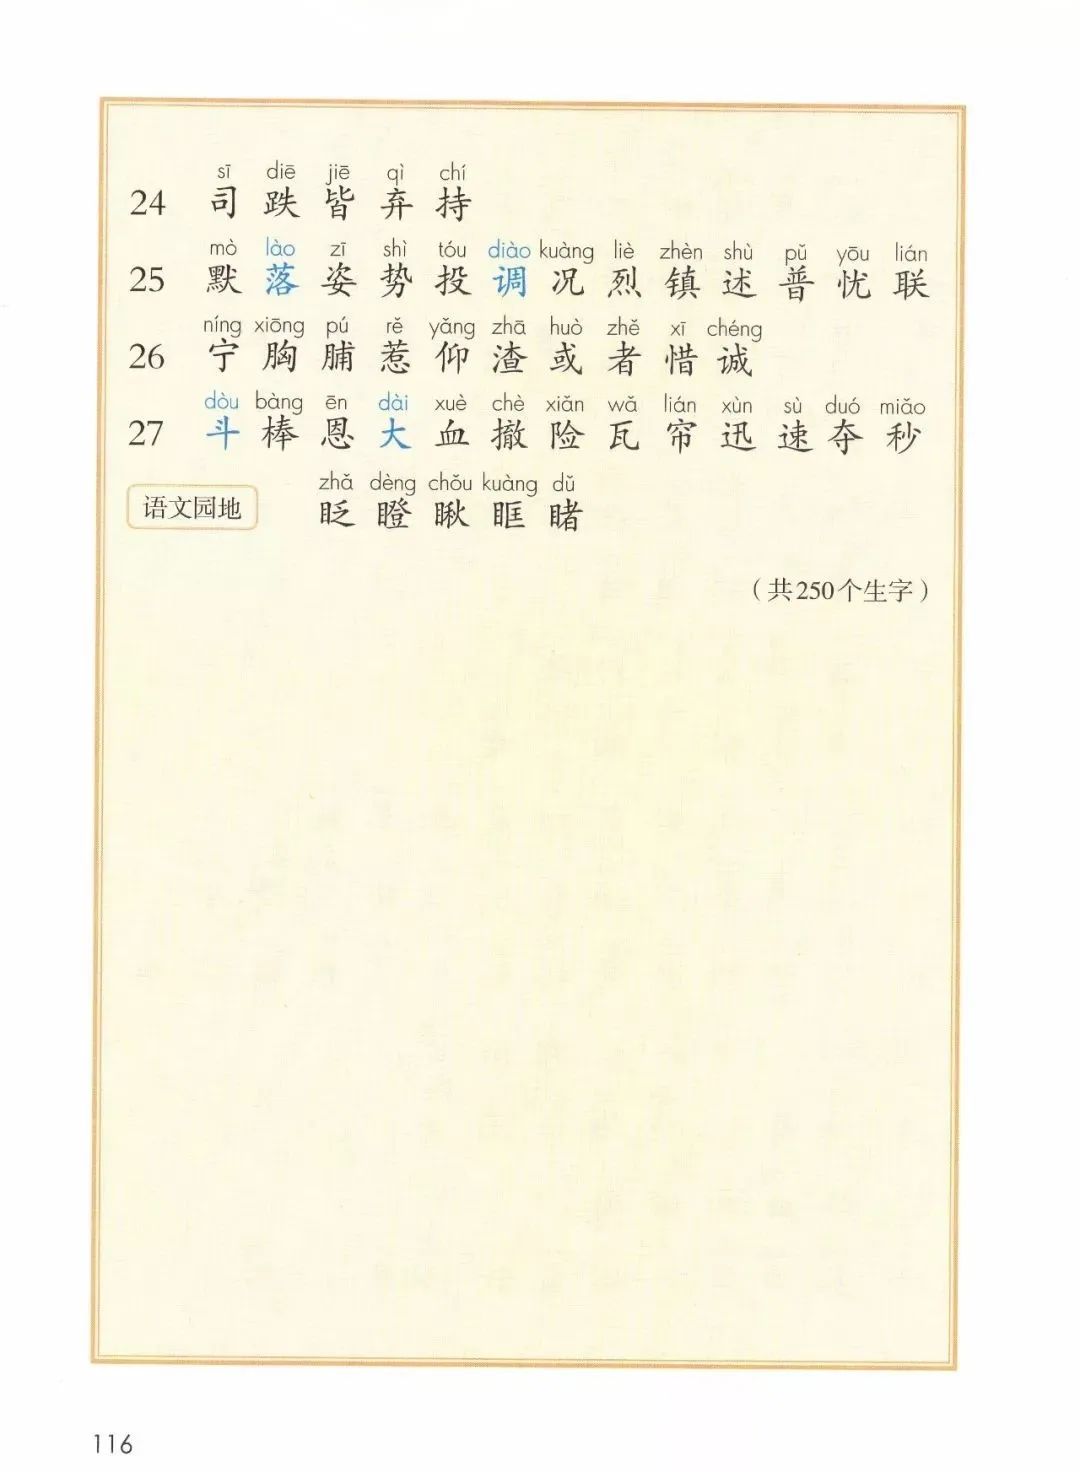 sī diē jiē qì chí
24 司 跌 皆 弃 持
mò lào zī shì tóu diào kuàng liè zhèn shù pǔ yōu lián
25 默 落 姿 势 投 调 况 烈 镇 述 普 忧 联
níng xiōng pú rě yǎng zhā huò zhě xī chéng
26 宁 胸 脯 惹 仰 渣 或 者 惜 诚
dòu bàng ēn dài xuè chè xiǎn wǎ lián xùn sù duó miǎo
27 斗 棒 恩 大 血 撤 险 瓦 帘 迅 速 夺 秒
zhǎ dèng chǒu kuàng dǔ
语文园地 眨 瞪 瞅 眶 睹
（共250个生字）
116